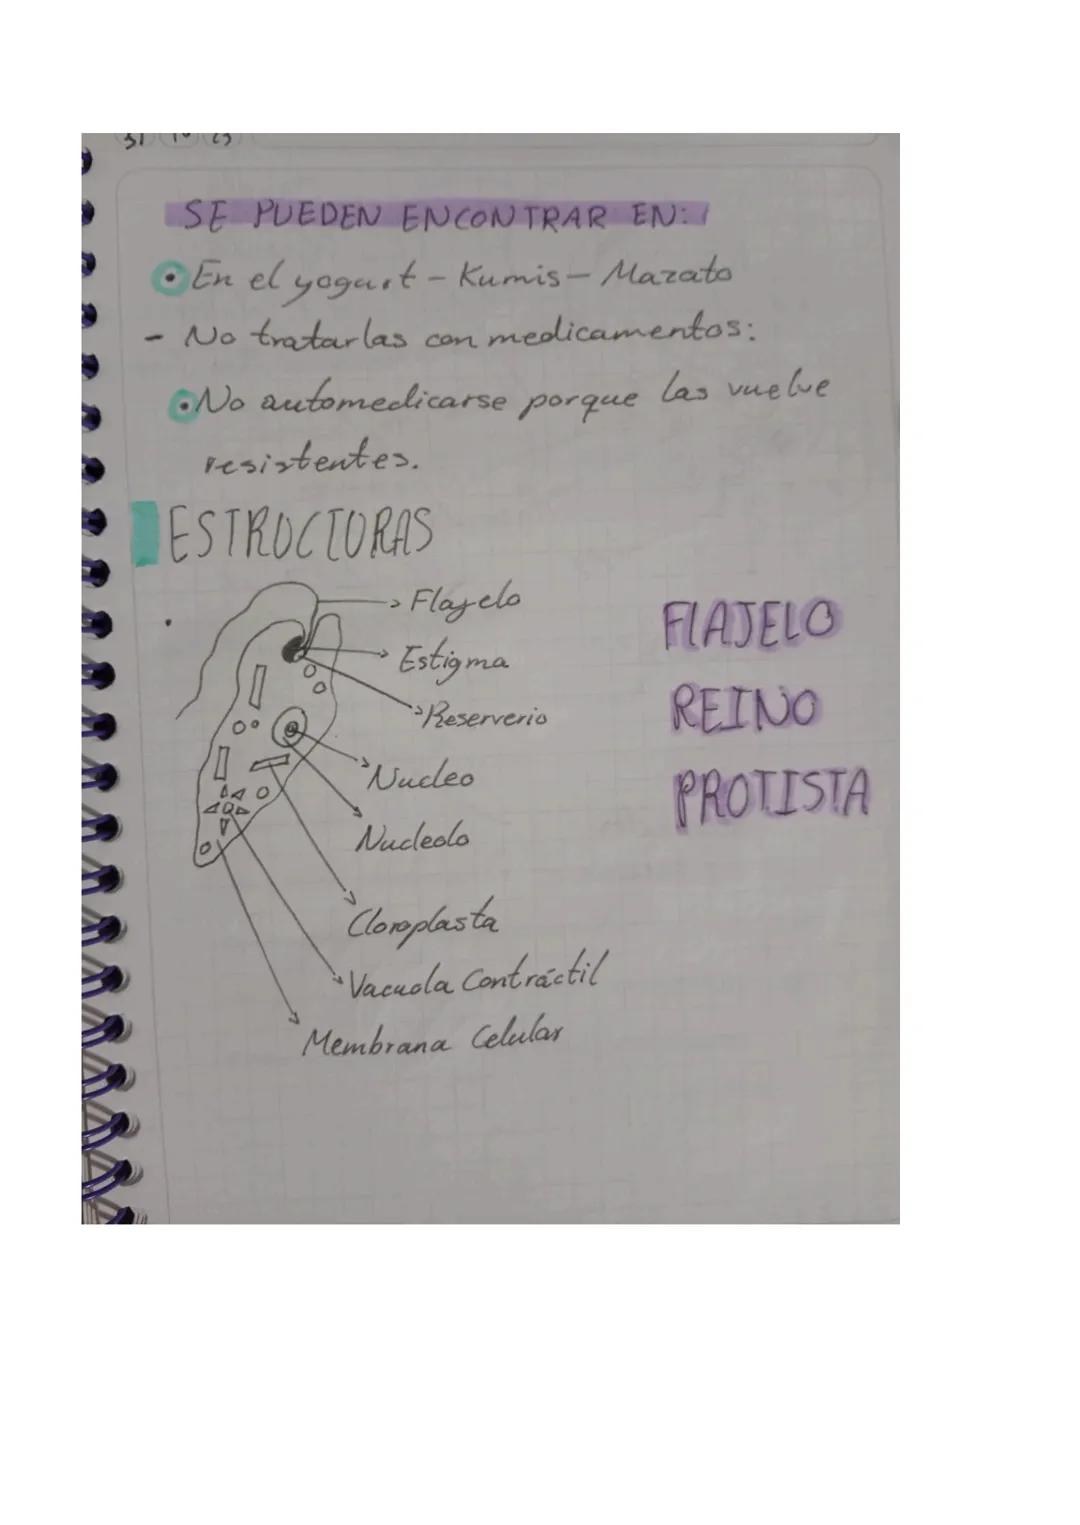 SE PUEDEN ENCONTRAR EN:
En el yogurt - Kumis - Mazato
- No tratarlas con medicamentos:
No automedicarse porque las vuelve
resistentes.
ESTRUCTURAS
Flajelo
Estigma
Reserverio
Nucleo
Nucleolo
Cloroplasta
Vacuola Contráctil
Membrana Celular
FLAJELO
REINO
PROTISTA